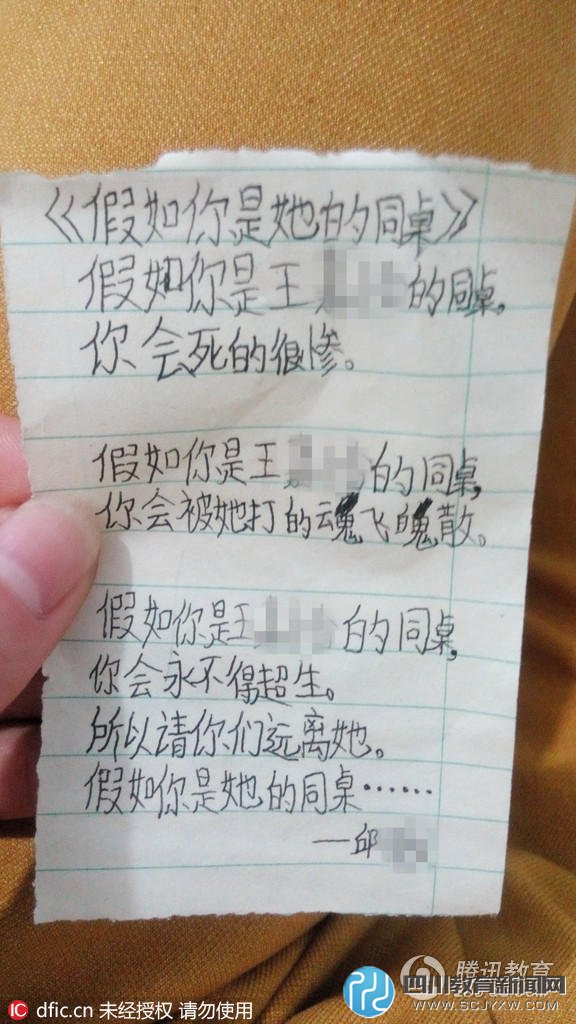 《假如你是她的同桌》
假如你是王 的同桌,
你会死的很惨。
假如你是王 的同桌,
你会被她打的魂飞魄散。
假如你是王 的同桌,
你会永不得超生。
所以请你们远离她。
假如你是她的同桌……
—邱
腾讯教育
四川教育新闻网
WWW.SCJYXW.COM
IC dfic.cn 未经授权 请勿使用